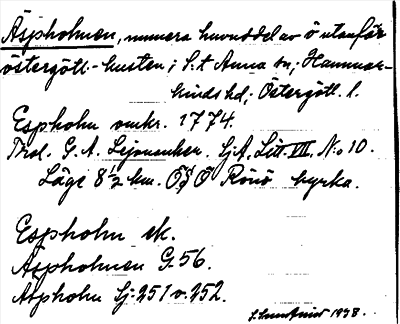 Äspholmen, numera huvuddel av ö utanför
östergötl.-kusten i S:t Anna sn, Hammar-
kinds hd, Östergötl. l.
Espholm omkr. 1774.
Trol. G. A. Lejonanker. SjA, Litt VII, No 10.
Läge 8½ km. OSO Rönö kyrka.
Espholm ek.
Äspholmen G. 56.
Aspholm Sj: 251 v. 252.
1938.